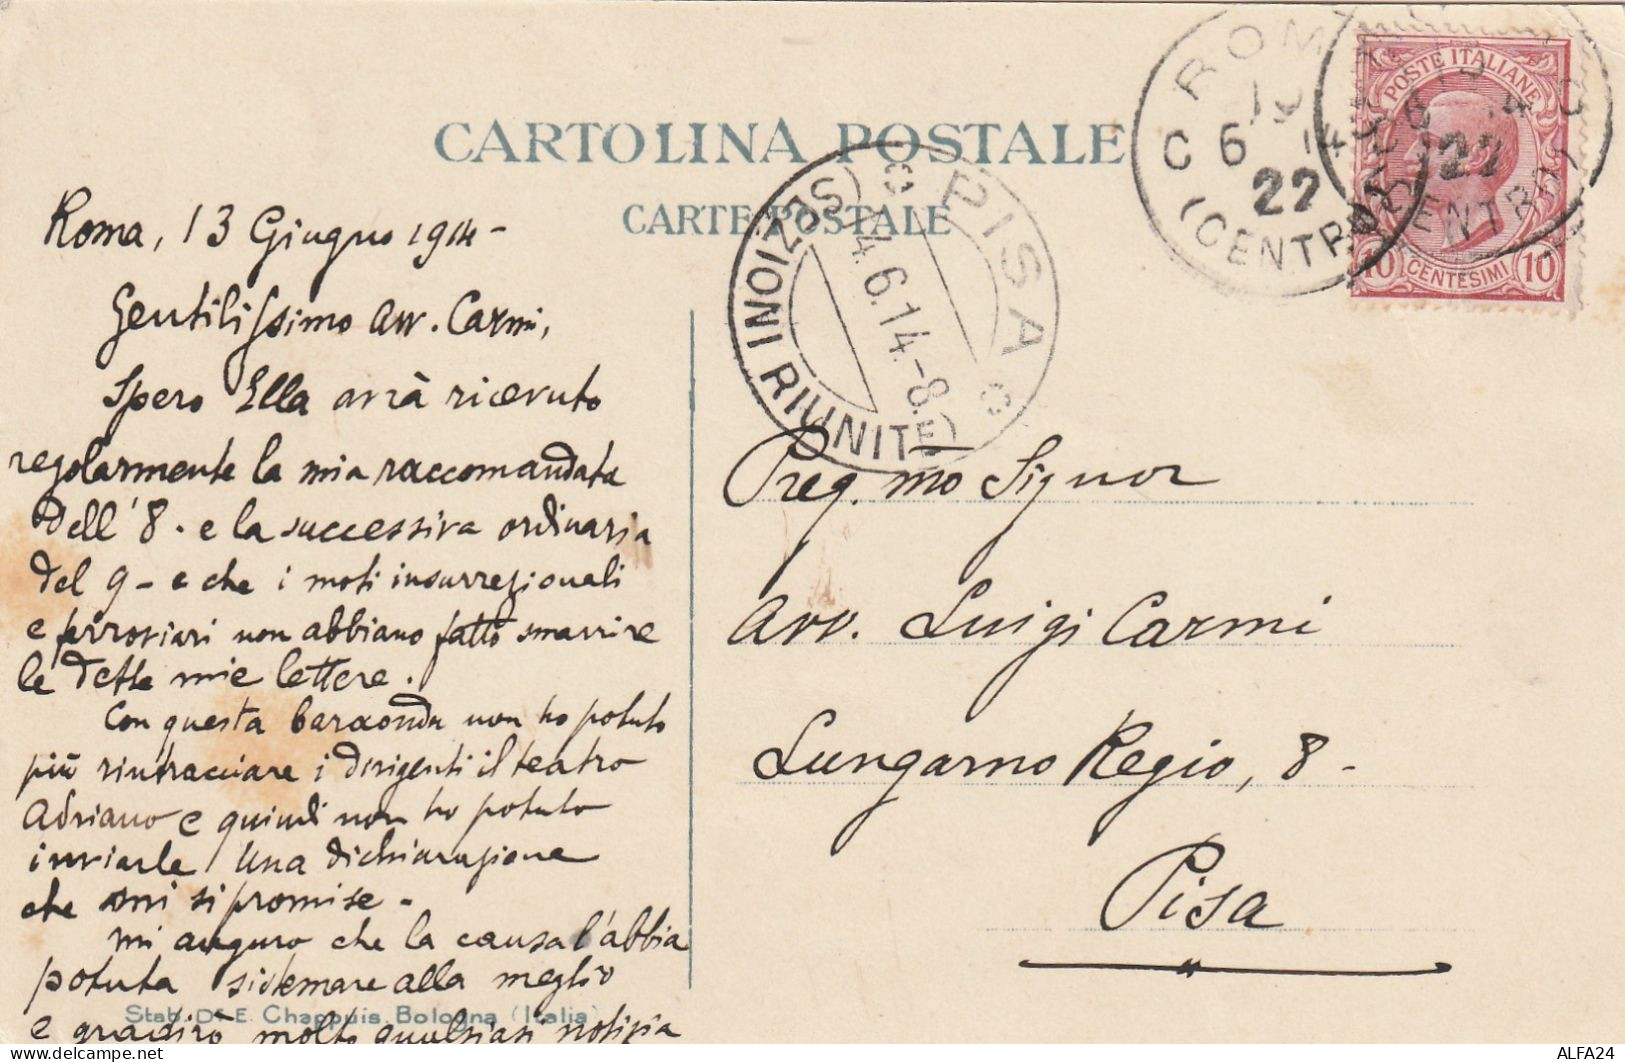 CARTOLINA POSTALE
CARTE POSTALE
Roma, 13 Giugno 1914 -
Gentilissimo Avv. Carmi,
Spero Ella avrà ricevuto
regolarmente la mia raccomandata
dell'8 - e la successiva ordinaria
del 9 - e che i moti insurrezionali
e ferroviari non abbiano fatto smarrire
le dette mie lettere.
Con questa baraonda non ho potuto
più rintracciare i dirigenti il teatro
Adriano e quindi non ho potuto
inviarle una dichiarazione
che mi si promise -
Mi auguro che la causa l'abbia
potuta sistemare alla meglio
e gradirò molto qualsiasi notizia
Stab. D. E. Chappuis Bologna (Italia)
ROMA
6 14
22
(CENTRO)
POSTE ITALIANE
10 CENTESIMI 10
PISA
14.6.14.-8.
(SEZIONI RIUNITE)
Preg.mo Signor
Avv. Luigi Carmi
Lungarno Regio, 8 -
Pisa
ALFA24